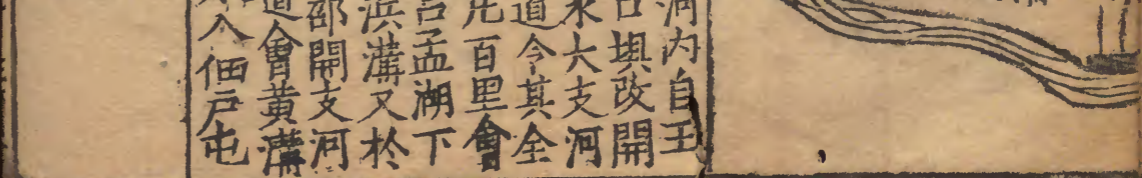 内自王
口改開
大支河
道令其全
百里會
呂孟湖下
浜溝又於
開支河
道會黃溝
入佃戶屯